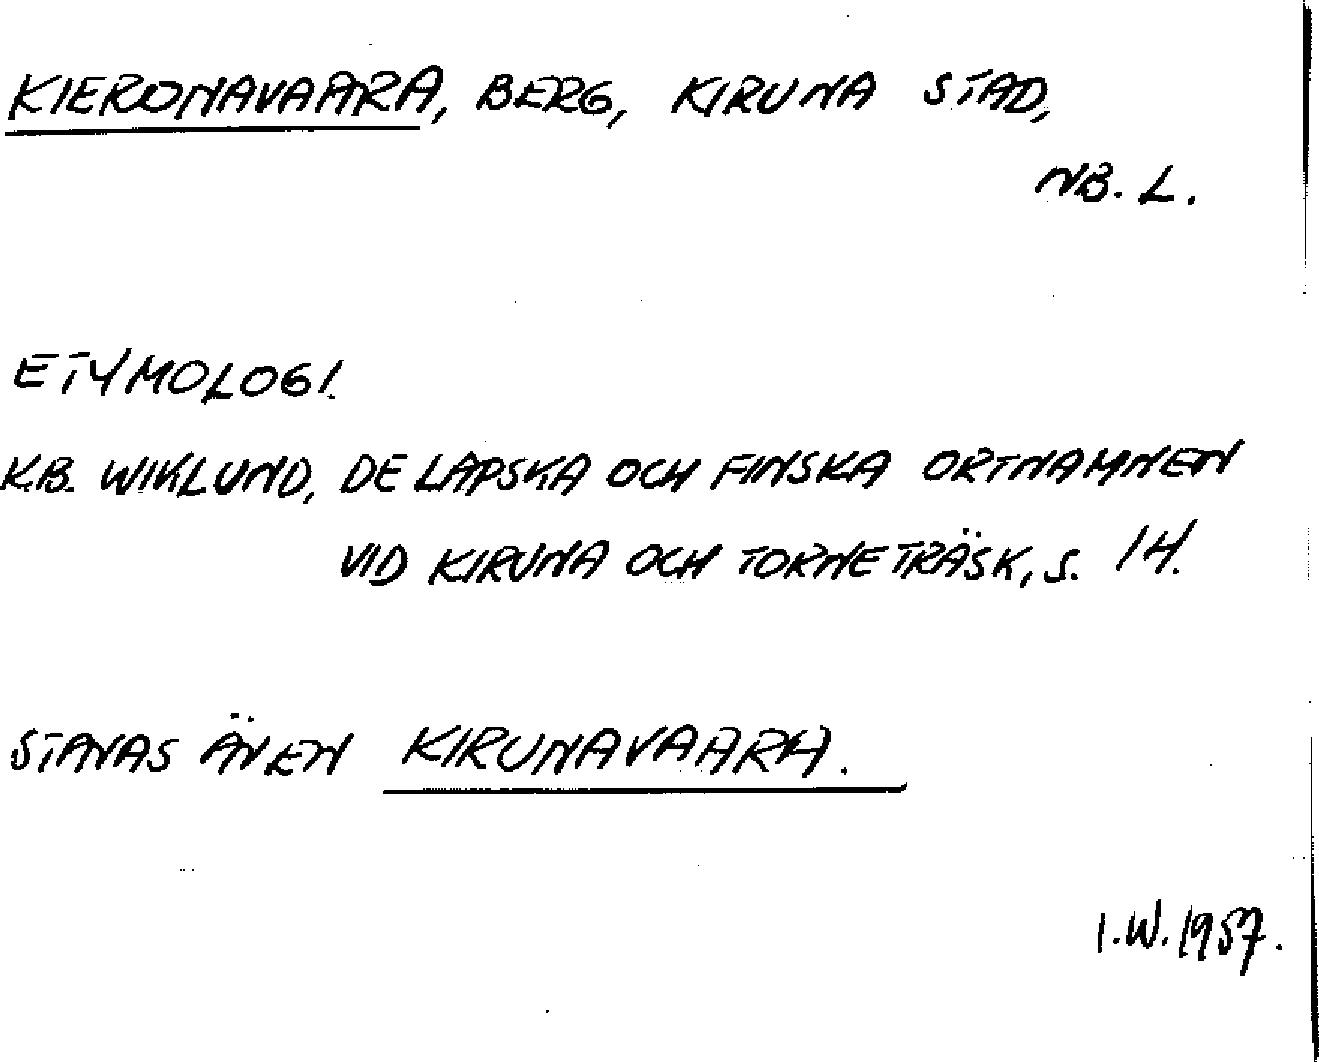 KIERONAVAARA, BERG, KIRUNA STAD,
NB. L.
ETYMOLOGI.
K.B. WIKLUND, DE LAPSKA OCH FINSKA ORTNAMNEN
VID KIRUNA OCH TORNETRÄSK, S. 14.
STAVAS ÄVEN KIRUNAVAARA.
I.W. 1957.